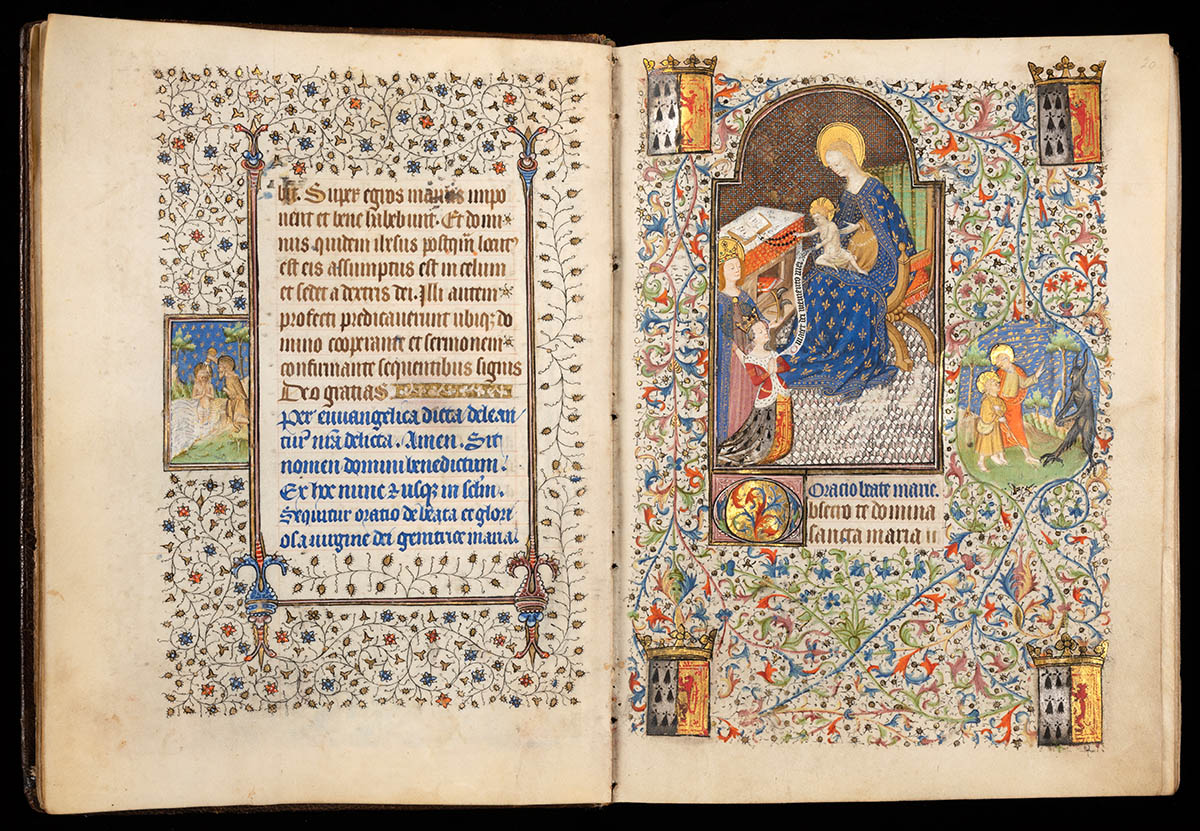 Super egros manus impo
nent et bene habebunt. Et domi
nus quidem ihesus postqm locut9
est eis assumptus est in celum
et sedet a dextris dei. Illi autem
profecti predicaverunt ubiqz do
mino cooperante et sermonem
confirmante sequentibus signis
Deo gratias
Per evvangelica dicta delean
tur nra delicta. Amen. Sit
nomen domini benedictum.
Ex hoc nunc et usqz in sclm.
Sequitur oratio de beata et glori
osa virgine dei genitrice maria.
20
mater dei memento mei
Oratio beate marie.
Obsecro te domina
sancta maria